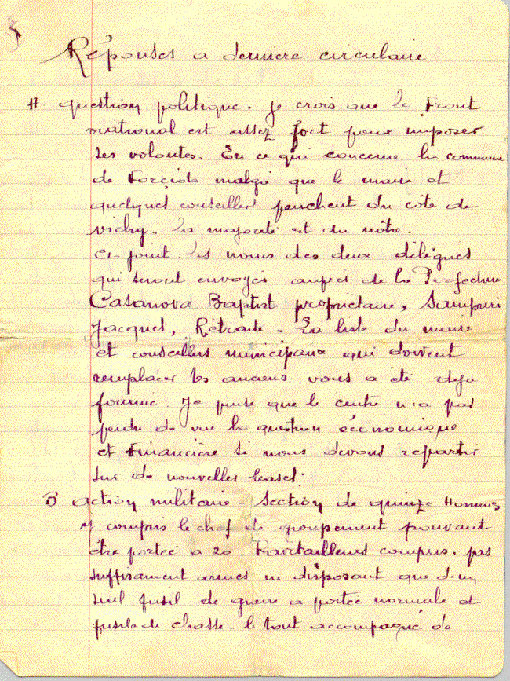 Réponses a derniere circulaire
A question politique. Je crois que le Front
national est assez fort pour imposer
ses volontes. En ce qui concerne la commune
de Forciolo malgré que le maire et
quelques conseillers penchent du coté de
Vichy. La majorité est du notre.
Ci joint les noms des deux délégués
qui seront envoyés aupres de la Prefecture
Casanova Baptist propriétaire,
Jacques, Retraité. La liste du maire
et conseillers municipaux qui doivent
remplacer les anciens vous a été deja
fournie. Je pense que le centre n'a pas
perdu de vue la question économique
et Financière si nous devons repartir
sur de nouvelles bases.
B action militaire. Section de quinze Hommes
y compris le chef de groupement pouvant
être portée a 20 Ravitailleurs compris. pas
suffisament armes ne disposant que d'un
seul fusil de guerre a portée normale et
fusils de chasse. le tout accompagné de